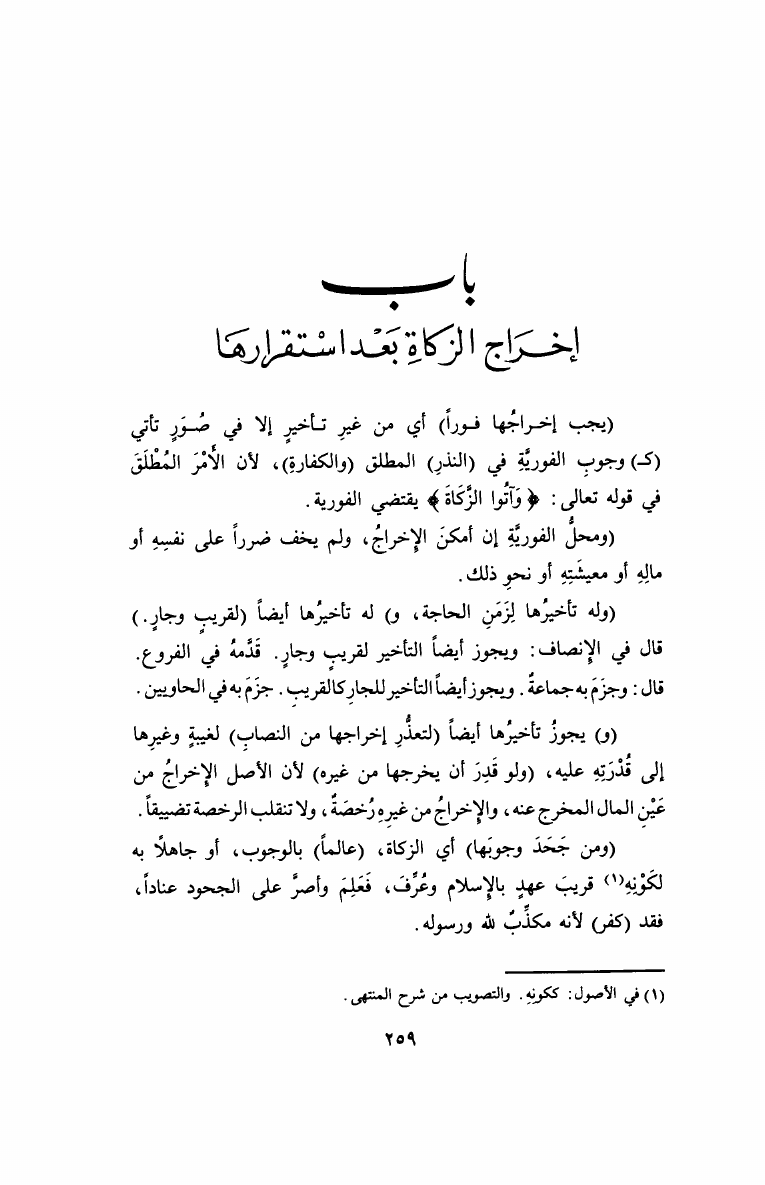 باب
إخراج الزكاةِ بَعْد اسْتقرارهَا
(يجب إخراجُها فوراً) أي من غيرِ تأخيرٍ إلا في صُوَرٍ تأتي
(كـ) وجوبِ الفوريَّةِ في (النذرِ) المطلق (والكفارةِ)، لأن الأَمْرَ المُطْلَقَ
في قوله تعالى: ﴿ وَآتُوا الزَّكَاةَ ﴾ يقتضي الفورية.
(ومحلُّ الفوريَّةِ إن أمكنَ الإِخراجُ، ولم يخف ضرراً على نفسِهِ أو
مالِهِ أو معيشَتِهِ أو نحوِ ذلك.
(وله تأخيرُها لِزَمَنِ الحاجة، و) له تأخيرُها أيضاً (لقريبٍ وجارٍ.)
قال في الإِنصاف: ويجوز أيضاً التأخير لقريبٍ وجارٍ. قَدَّمهُ في الفروع.
قال: وجزَمَ به جماعةٌ. ويجوز أيضاً التأخير للجارِ كالقريبِ. جزَمَ به في الحاويين.
(و) يجوزُ تأخيرُها أيضاً (لتعذُّرِ إخراجها من النصابِ) لغيبةٍ وغيرِها
إلى قُدْرَتِهِ عليه، (ولو قَدِرَ أن يخرجها من غيره) لأن الأصل الإِخراجُ من
عَيْنِ المال المخرج عنه، والإِخراجُ من غيرِهِ رُخصَةٌ، ولا تنقلب الرخصة تضييقاً.
(ومن جَحَدَ وجوبَها) أي الزكاة، (عالماً) بالوجوب، أو جاهلاً به
لكَوْنِهِ(١) قريبَ عهدٍ بالإِسلام وعُرِّفَ، فَعَلِمَ وأصرَّ على الجحود عناداً،
فقد (كفر) لأنه مكذِّبٌ لله ورسوله.
(١) في الأصول: ككونِهِ. والتصويب من شرح المنتهى.
٢٥٩